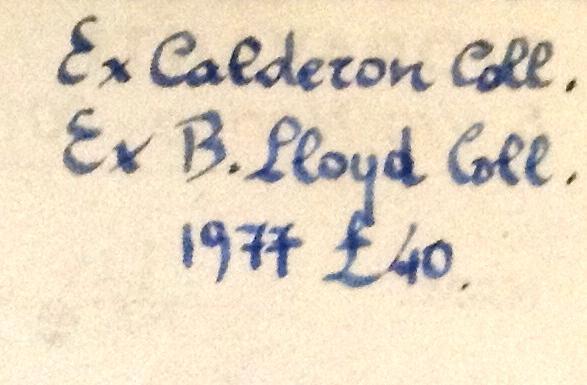 Ex Calderon Coll.
Ex B. Lloyd Coll.
1977 £40.